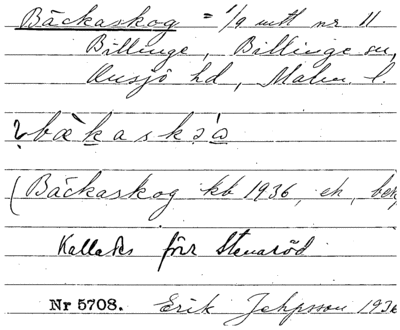 Bäckaskog = 1/9 mtl nr 11
Billinge, Billinge sn,
Onsjö hd, Malm. l.
bækask
(Bäckaskog kb 1936, ek,
Kallades förr Stenaröd
Nr 5708. Erik Jeppsson 1936